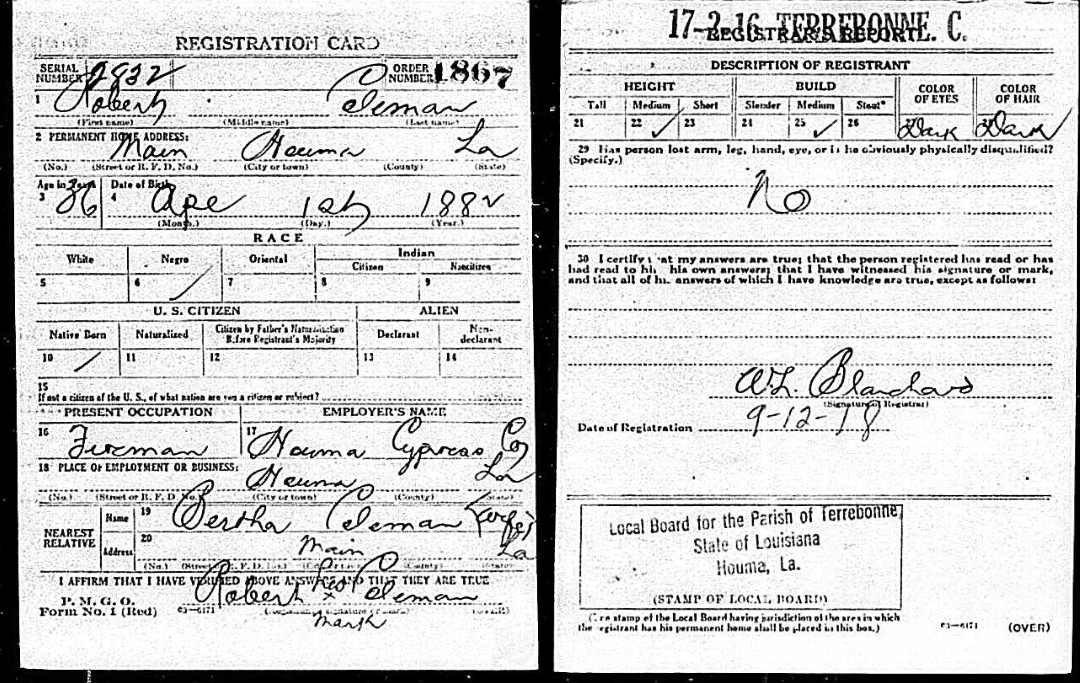 REGISTRATION CARD
SERIAL NUMBER 2832 ORDER NUMBER 1867
1 Robert Coleman
(First name) (Middle name) (Last name)
2 PERMANENT HOME ADDRESS:
Main Houma La
(No.) (Street or R. F. D. No.) (City or town) (County) (State)
Age in Years Date of Birth
3 36 4 Ape 1st 1882
(Month.) (Day.) (Year.)
RACE
White Negro Oriental Indian
Citizen Noncitizen
5 6 ✓ 7 8 9
U. S. CITIZEN ALIEN
Native Born Naturalized Citizen by Father's Naturalization Before Registrant's Majority Declarant Non-declarant
10 ✓ 11 12 13 14
15
If not a citizen of the U. S., of what nation are you a citizen or subject?
PRESENT OCCUPATION EMPLOYER'S NAME
16 Fireman 17 Houma Cypress Co
18 PLACE OF EMPLOYMENT OR BUSINESS:
Houma La
(No.) (Street or R. F. D. No.) (City or town) (County) (State)
NEAREST RELATIVE Name 19 Bertha Coleman (wife)
Address 20 Main La
(No.) (Street or R. F. D. No.) (City or town) (County) (State)
I AFFIRM THAT I HAVE VERIFIED ABOVE ANSWERS AND THAT THEY ARE TRUE
P. M. G. O.
Form No. 1 (Red) 03—6171 Robert his x Coleman
(Registrant's signature or mark) (OVER)
mark
17-2-16 TERREBONNE. C.
REGISTRAR'S REPORT
DESCRIPTION OF REGISTRANT
HEIGHT BUILD COLOR OF EYES COLOR OF HAIR
Tall Medium Short Slender Medium Stout
21 22 ✓ 23 24 25 ✓ 26 27 Dark 28 Dark
29 Has person lost arm, leg, hand, eye, or is he obviously physically disqualified?
(Specify.)
No
30 I certify that my answers are true; that the person registered has read or has
had read to him his own answers; that I have witnessed his signature or mark,
and that all of his answers of which I have knowledge are true, except as follows:
W.L. Blanchard
(Signature of Registrar)
Date of Registration 9-12-18
Local Board for the Parish of Terrebonne,
State of Louisiana
Houma, La.
(STAMP OF LOCAL BOARD)
(The stamp of the Local Board having jurisdiction of the area in which
the registrant has his permanent home shall be placed in this box.) 03—6171 (OVER)